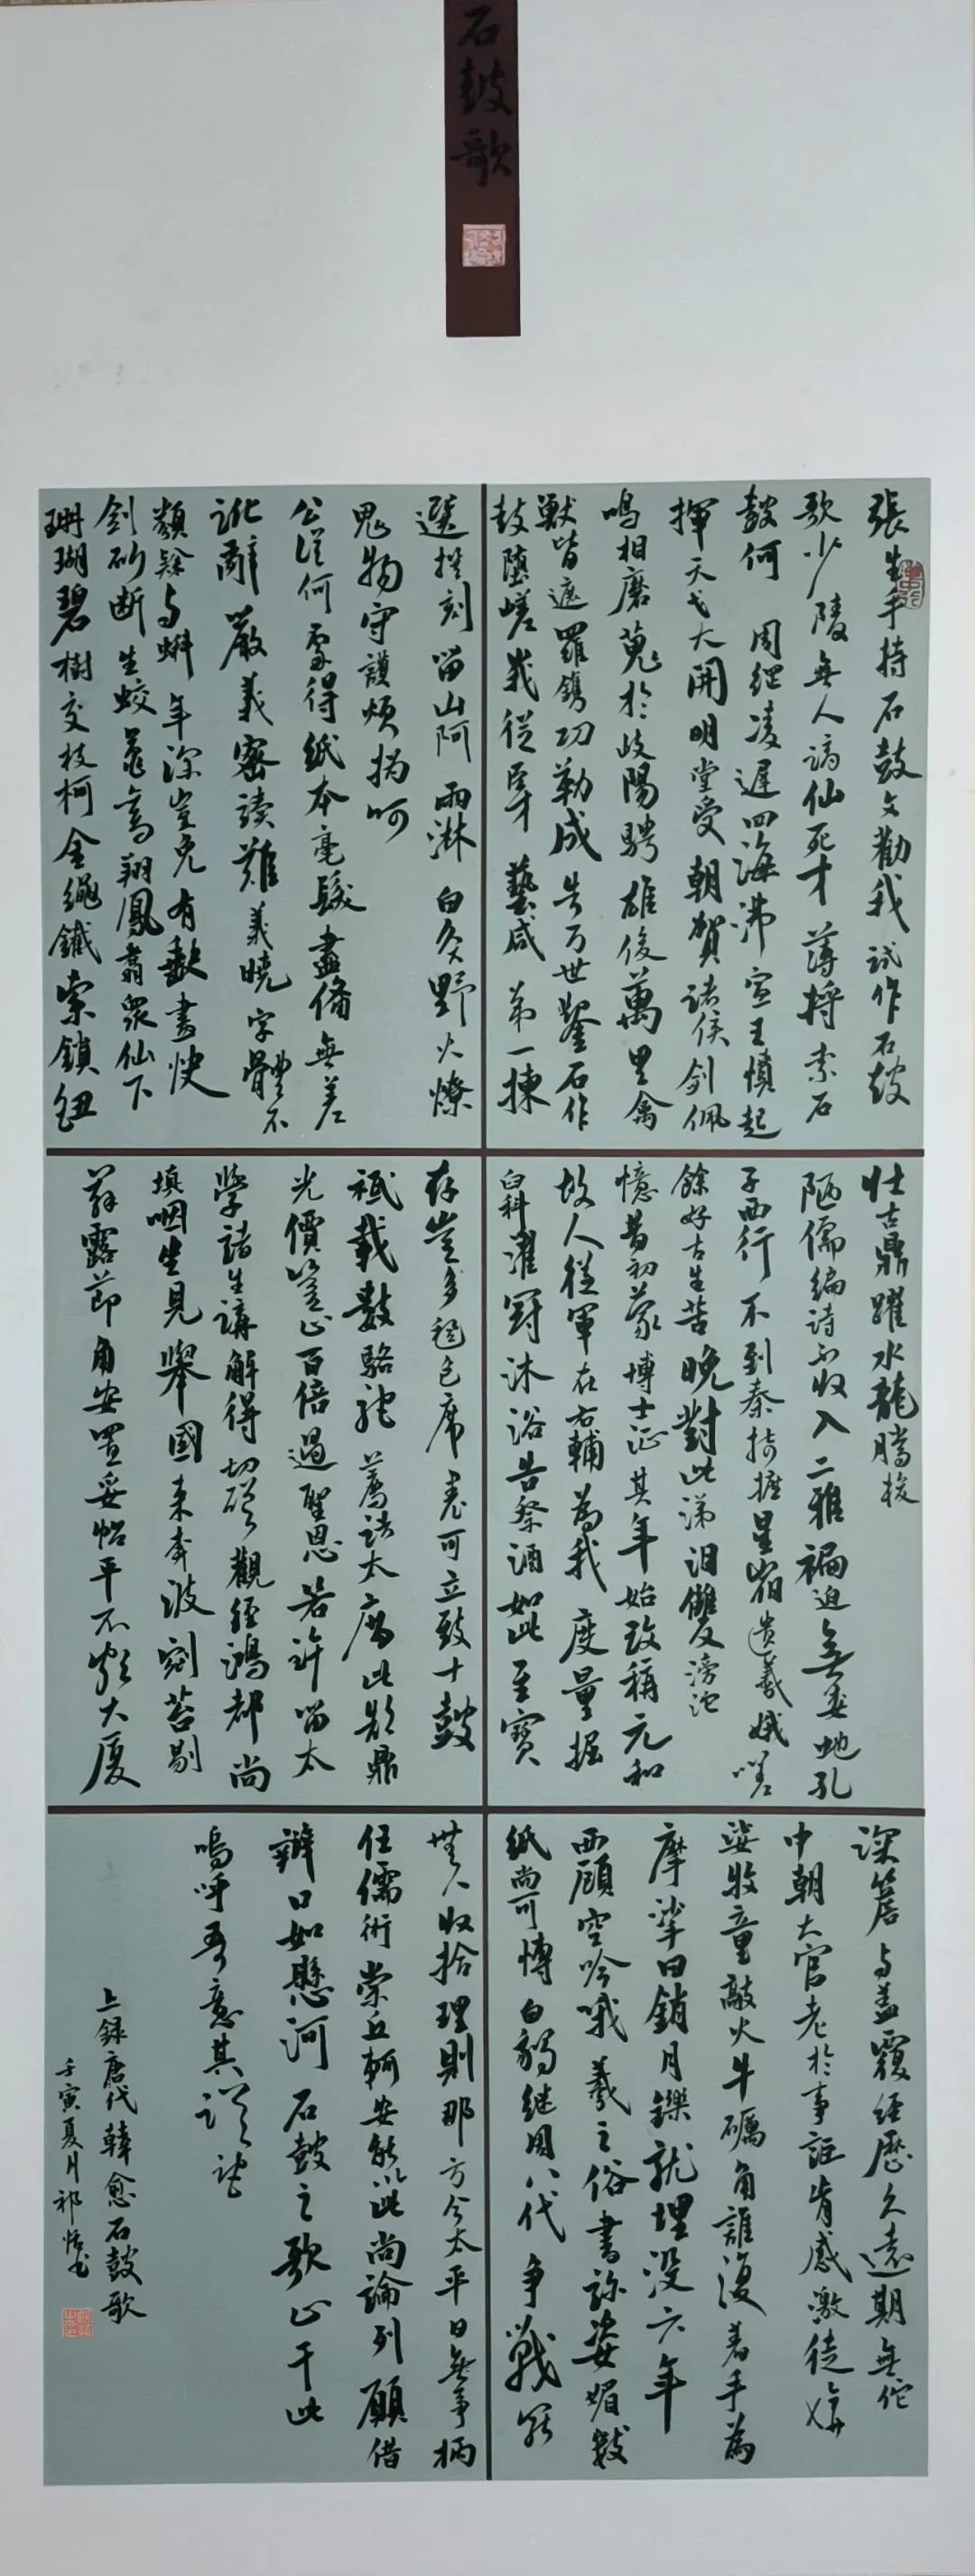 石鼓歌
張生手持石鼓文勸我試作石鼓
歌少陵無人謫仙死才薄將索石
鼓何周綱凌遲四海沸宣王憤起
揮天戈大開明堂受朝賀諸侯劍佩
鳴相磨蒐於岐陽騁雄俊萬里禽
獸皆遮羅鐫功勒成告万世鑿石作
鼓隳嵯峨從臣才藝咸第一揀
選撰刻留山阿雨淋白炙野火燎
鬼物守護煩撝呵
公從何處得紙本毫髮盡備無差
訛辭嚴義密讀難義曉字體不
類隸与蝌年深豈免有缺畫快
劍斫斷生蛟鼉鸞翔鳳翥衆仙下
珊瑚碧樹交枝柯金繩鐵索鎖鈕
壮古鼎躍水龍騰梭
陋儒編诗不收入二雅褊迫無委蛇孔
子西行不到秦掎摭星宿遺羲娥嗟
餘好古生苦晚對此涕泪雙滂沱
憶昔初蒙博士征其年始改稱元和
故人從軍在右輔為我度量掘
臼科濯冠沐浴告祭酒如此至寶
存豈多氈包席裹可立致十鼓
祇載數駱駝薦诸太廟比郜鼎
光價豈止百倍過聖恩若許留太
學諸生講解得切磋觀經鴻都尚
填咽坐見舉國来奔波剜苔剔
蘚露節角安置妥帖平不頗大廈
深簷与蓋覆經歷久遠期無佗
中朝大官老於事詎肯感激徒媕
婆牧童敲火牛礪角誰復着手為
摩挲日銷月鑠就埋没六年
西顧空吟哦羲之俗書趁姿媚數
紙尚可博白鵝继周八代争戰罷
無人收拾理則那方今太平日無事柄
任儒術崇丘軻安能以此尚論列願借
辯口如懸河石鼓之歌止于此
嗚呼吾意其蹉跎
上録唐代韓愈石鼓歌
壬寅夏月祁恬书